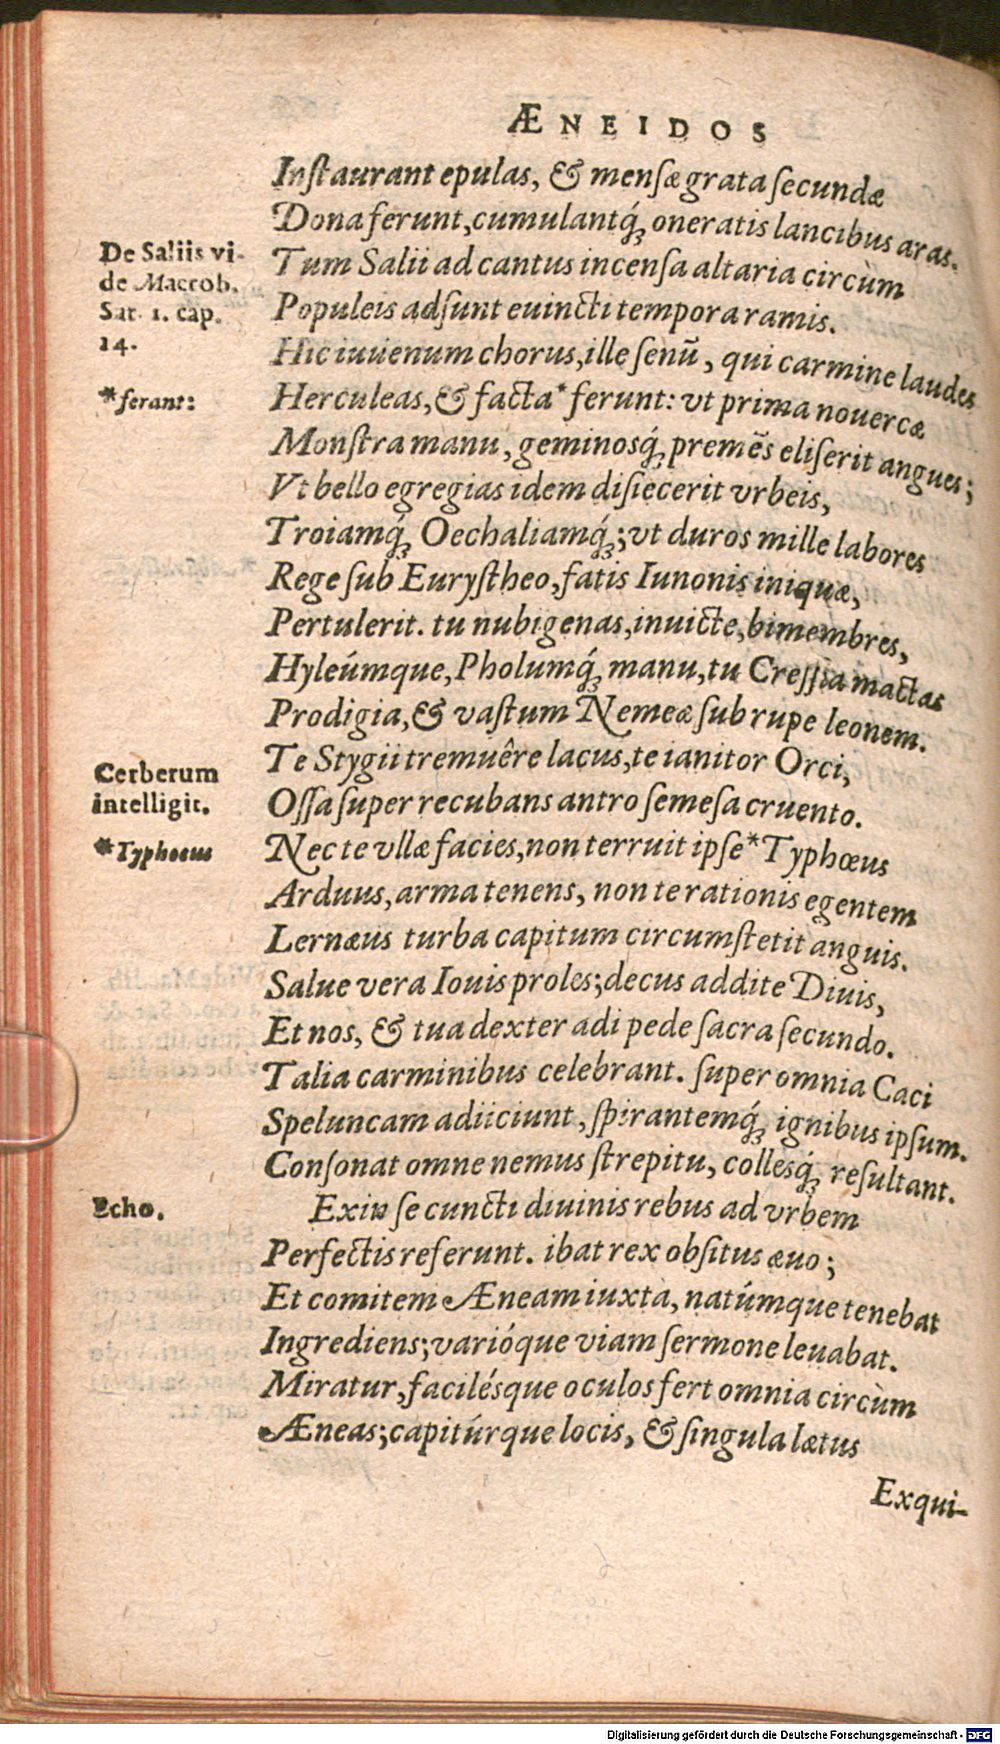 ÆNEIDOS
Inſtaurant epulas, & menſæ grata ſecundæ
Dona ferunt, cumulantq́ꝫ oneratis lancibus aras.
De Saliis vi-
de Macrob.
Sat. 1. cap.
14.
Tum Salii ad cantus incenſa altaria circùm
Populeis adſunt euincti tempora ramis.
Hic iuuenum chorus, ille ſenū, qui carmine laudes
*ferant:
Herculeas, & facta *ferunt: vt prima nouercæ
Monſtra manu, geminosq́ꝫ premēs eliſerit angues;
Vt bello egregias idem diſiecerit vrbeis,
Troiamq́ꝫ Oechaliamq́ꝫ; vt duros mille labores
Rege ſub Euryſtheo, fatis Iunonis iniquæ,
Pertulerit. tu nubigenas, inuicte, bimembres,
Hyleúmque, Pholumq́ꝫ manu, tu Creſſia mactas
Prodigia, & vaſtum Nemeæ ſub rupe leonem.
Cerberum
intelligit.
Te Stygii tremuêre lacus, te ianitor Orci,
Oſſa ſuper recubans antro ſemeſa cruento.
*Typhoeus
Nec te vllæ facies, non terruit ipſe *Typhœus
Arduus, arma tenens, non te rationis egentem
Lernæus turba capitum circumſtetit anguis.
Salue vera Iouis proles; decus addite Diuis,
Et nos, & tua dexter adi pede ſacra ſecundo.
Talia carminibus celebrant. ſuper omnia Caci
Speluncam adiiciunt, ſpirantemq́ꝫ ignibus ipſum.
Conſonat omne nemus ſtrepitu, collesq́ꝫ reſultant.
Echo.
Exin ſe cuncti diuinis rebus ad vrbem
Perfectis referunt. ibat rex obſitus æuo;
Et comitem Æneam iuxtà, natúmque tenebat
Ingrediens; varióque viam ſermone leuabat.
Miratur, facilésque oculos fert omnia circùm
Æneas; capitúrque locis, & ſingula lætus
Exqui-
Digitalisierung gefördert durch die Deutsche Forschungsgemeinschaft - DFG